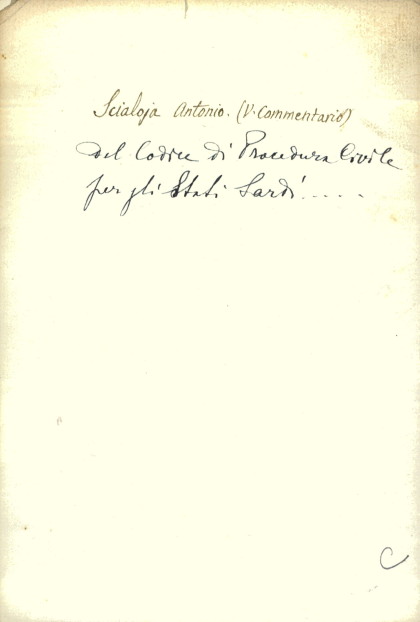 Scialoja Antonio. (V. Commentario)
del Codice di Procedura Civile
per gli Stati Sardi.....
C